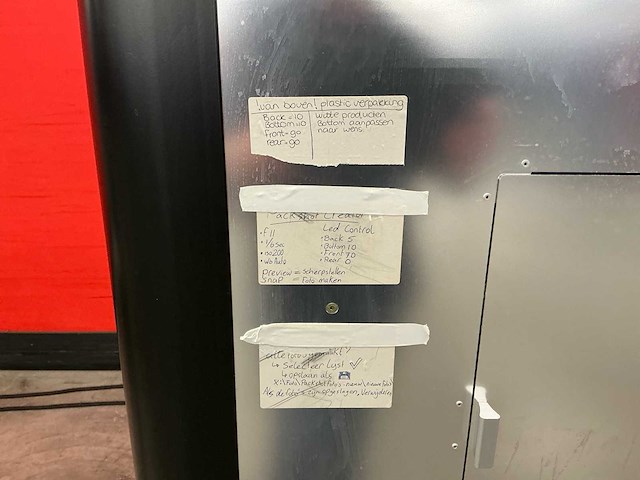 !van boven! plastic verpakking
Back = 10
Bottom = 0
Front = 90
rear = 90
witte producten
Bottom aanpassen
naar wens.
Pack Creator
• F11
• iso 200
• wb Auto
Led Control
• Back 5
• Bottom 10
• Front 70
• Rear 0
preview = scherpstellen
Snap = Foto maken
↳ Selecteer Lijst
↳ opslaan als
Als de foto's zijn opgeslagen, verwijderen